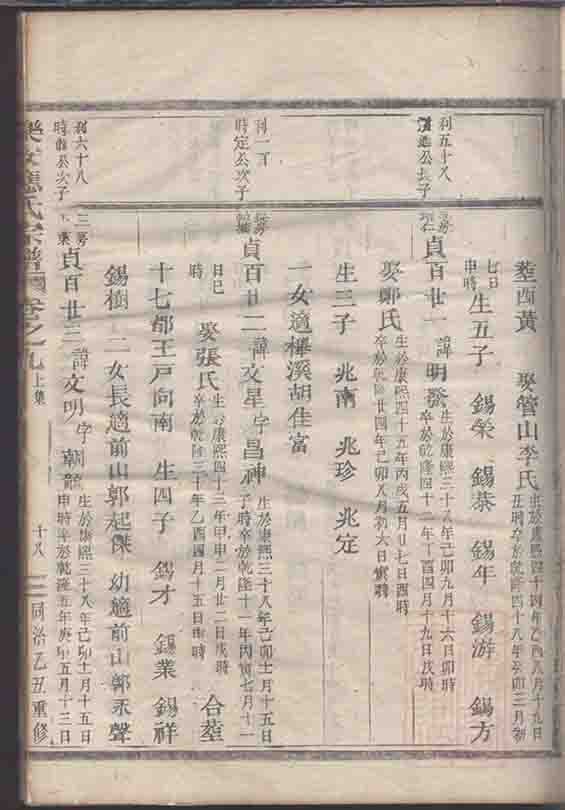 葬西黃 娶管山李氏 生於康熙四十四年乙酉八月十九日丑時卒於乾隆四十八年癸卯三月初
七日申時 生五子 錫榮 錫恭 錫年 錫游 錫方
利五十八 公長子 貞百廿一 諱明發 生於康熙三十八年己卯九月十六日卯時卒於乾隆四十二年丁酉四月十九日戌時
娶鄭氏 生於康熙四十五年丙戌五月廿七日酉時卒於乾隆廿四年己卯八月初六日寅時
生三子 兆南 兆珍 兆定
一女適樺溪胡佳富
利一百 時定公次子 貞百廿二 諱文星字昌神 生於康熙三十八年己卯十一月十五日子時卒於乾隆十一年丙寅七月十一
日巳時 娶張氏 生於康熙四十三年甲申二月廿二日戌時卒於乾隆三十年乙酉四月十五日申時 合葬
十七都王戸向南 生四子 錫才 錫業 錫祥
錫樹 二女長適前山郭起傑 幼適前山郭永聲
利六十八 公次子 三房 貞百廿三 諱文明字朝龍 生於康熙三十八年己卯十一月十五日申時卒於乾隆五年庚申五月十三日
應氏宗譜 卷之九 上集 十八 同治乙丑重修